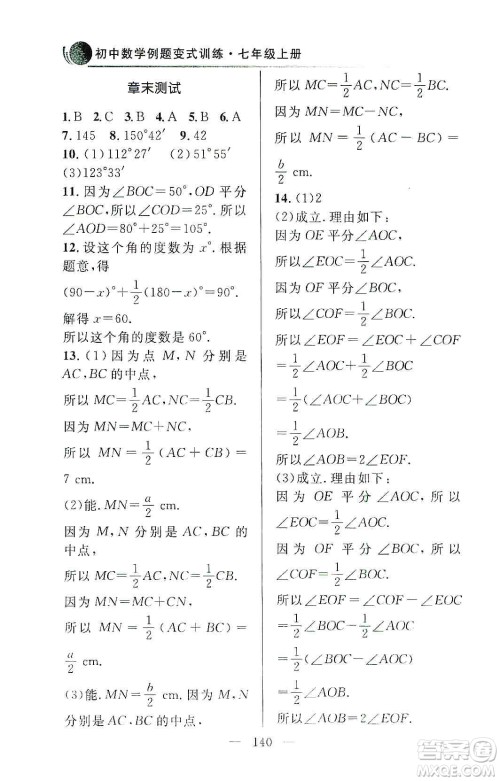 初中数学例题变式训练·七年级上册
章末测试
1.B 2.C 3.A 4.A 5.B 6.B
7.145 8.150°42′ 9.42
10.(1)112°27′ (2)51°55′
(3)123°33′
11.因为∠BOC=50°,OD平分
∠BOC,所以∠BOD=25°.所以
∠AOD=80°+25°=105°.
12.设这个角的度数为x°.根据
题意,得
(90-x)°+1/2(180-x)°=90°.
解得x=60.
所以这个角的度数是60°.
13.(1)因为点M,N分别是
AC,BC的中点,
所以MC=1/2AC,NC=1/2CB.
因为MN=MC+NC,
所以MN=1/2(AC+CB)=
7 cm.
(2)能.MN=a/2 cm.
因为M,N分别是AC,BC的
中点,
所以MC=1/2AC,NC=1/2CB.
因为MN=MC+CN,
所以MN=1/2(AC+BC)=
a/2 cm.
(3)能.MN=b/2 cm.
因为M,N分别是AC,BC的
中点,
所以MC=1/2AC,NC=1/2BC.
因为MN=MC-NC,
所以MN=1/2(AC-BC)=
b/2 cm.
14.(1)2
(2)成立.理由如下:
因为OE平分∠AOC,
所以∠EOC=1/2∠AOC.
因为OF平分∠BOC,
所以∠COF=1/2∠BOC.
所以∠EOF=∠EOC+∠COF
=1/2∠AOC+1/2∠BOC
=1/2(∠AOC+∠BOC)
=1/2∠AOB.
所以∠AOB=2∠EOF.
(3)成立.理由如下:
因为OE平分∠AOC,所以
∠EOC=1/2∠AOC.
因为OF平分∠BOC,所
以∠COF=1/2∠BOC.
所以∠EOF=∠COF-∠EOC
=1/2∠BOC-1/2∠AOC
=1/2(∠BOC-∠AOC)
=1/2∠AOB.
所以∠AOB=2∠EOF.
— 140 —